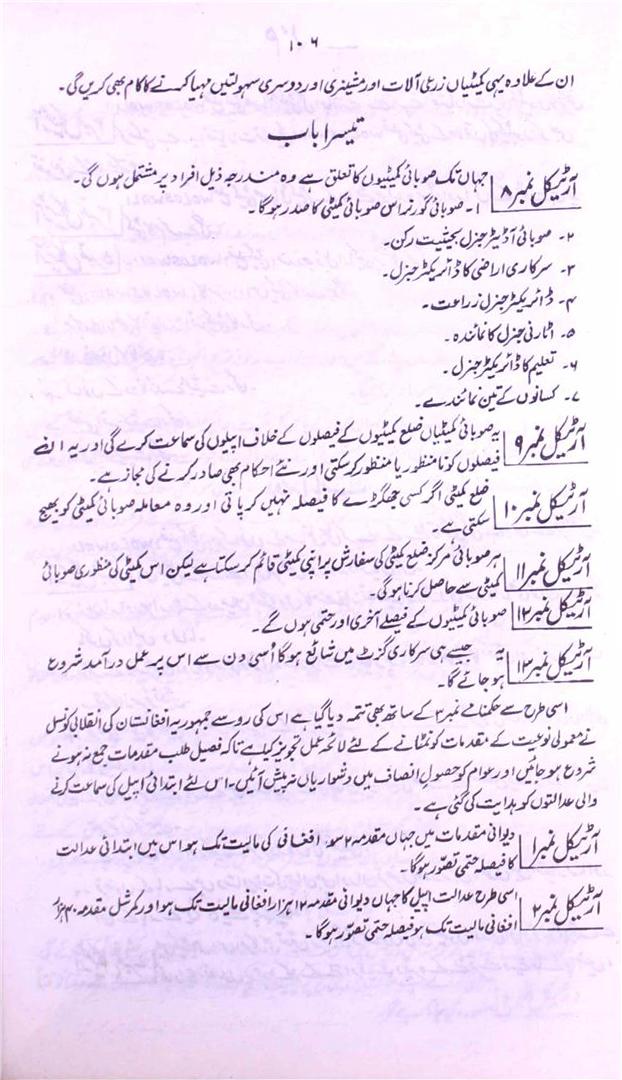 ۱۰۶
ان کے علاوہ یہی کمیٹیاں زرعی آلات اور مشینری اور دوسری سہولتیں مہیا کرنے کا کام بھی کریں گی۔
تیسرا باب
آرٹیکل نمبر ۸ جہاں تک صوبائی کمیٹیوں کا تعلق ہے وہ مندرجہ ذیل افراد پر مشتمل ہوں گی۔
۱۔ صوبائی گورنر اس صوبائی کمیٹی کا صدر ہوگا۔
۲۔ صوبائی آڈیٹر جنرل بحیثیت رکن۔
۳۔ سرکاری اراضی کا ڈائریکٹر جنرل۔
۴۔ ڈائریکٹر جنرل زراعت۔
۵۔ اٹارنی جنرل کا نمائندہ۔
۶۔ تعلیم کا ڈائریکٹر جنرل۔
۷۔ کسانوں کے تین نمائندے۔
آرٹیکل نمبر ۹ یہ صوبائی کمیٹیاں ضلع کمیٹیوں کے فیصلوں کے خلاف اپیلوں کی سماعت کرے گی اور یہ ایسے
فیصلوں کو نامنظور یا منظور کر سکتی اور نئے احکام بھی صادر کرنے کی مجاز ہے۔
آرٹیکل نمبر ۱۰ ضلع کمیٹی اگر کسی جھگڑے کا فیصلہ نہیں کر پاتی اور وہ معاملہ صوبائی کمیٹی کو بھیج
سکتی ہے۔
آرٹیکل نمبر ۱۱ ہر صوبائی مرکز ضلع کمیٹی کی سفارش پر اپنی کمیٹی قائم کر سکتا ہے لیکن اس کمیٹی کی منظوری صوبائی
کمیٹی سے حاصل کرنا ہوگی۔
آرٹیکل نمبر ۱۲ صوبائی کمیٹیوں کے فیصلے آخری اور حتمی ہوں گے۔
آرٹیکل نمبر ۱۳ یہ جیسے ہی سرکاری گزٹ میں شائع ہوگا اُسی دن سے اس پر عمل درآمد شروع
ہو جائے گا۔
اسی طرح سے حکمنامے نمبر ۳ کے ساتھ بھی تتمہ دیا گیا ہے اس کی رو سے جمہوریہ افغانستان کی انقلابی کونسل
نے معمولی نوعیت کے مقدمات کو نمٹانے کے لئے لائحہ عمل تجویز کیا ہے تاکہ فیصل طلب مقدمات جمع نہ ہونے
شروع ہو جائیں اور عوام کو حصولِ انصاف میں دشواریاں نہ پیش آئیں۔ اس لئے ابتدائی اپیل کی سماعت کرنے
والی عدالتوں کو ہدایت کی گئی ہے۔
آرٹیکل نمبر ۱ دیوانی مقدمات میں جہاں مقدمہ افغانی کی مالیت تک ہو اس میں ابتدائی عدالت
کا فیصلہ حتمی تصوّر ہوگا۔
آرٹیکل نمبر ۲ اسی طرح عدالت اپیل کا جہاں دیوانی مقدمہ ۱۲ ہزار افغانی مالیت تک ہو اور کمرشل مقدمہ ۴۰ ہزار
افغانی مالیت تک ہو فیصلہ حتمی تصوّر ہوگا۔